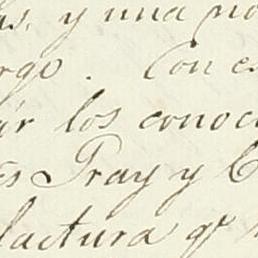 as, y una no
rgo. Con es
ár los conoc
es Pray y C
factura qe